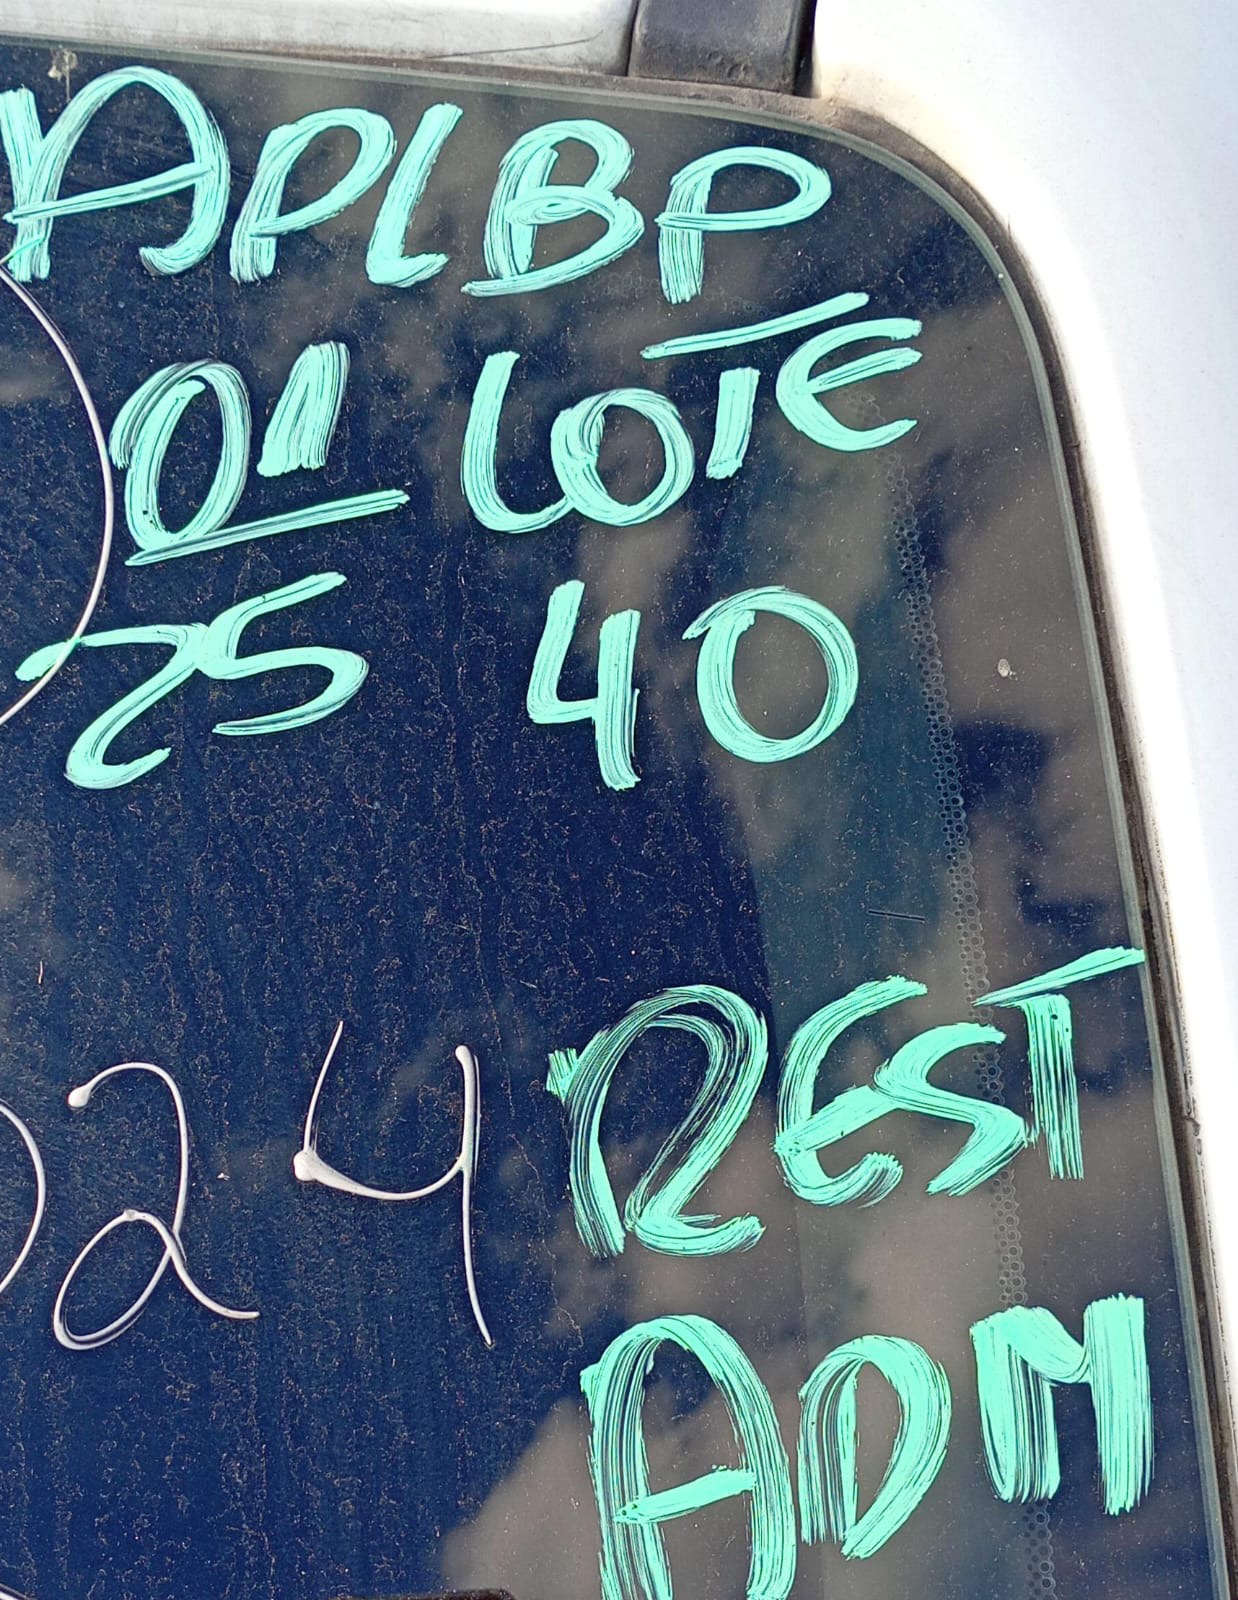 APLBP
01 LOTE
25 40
24 REST
ADM